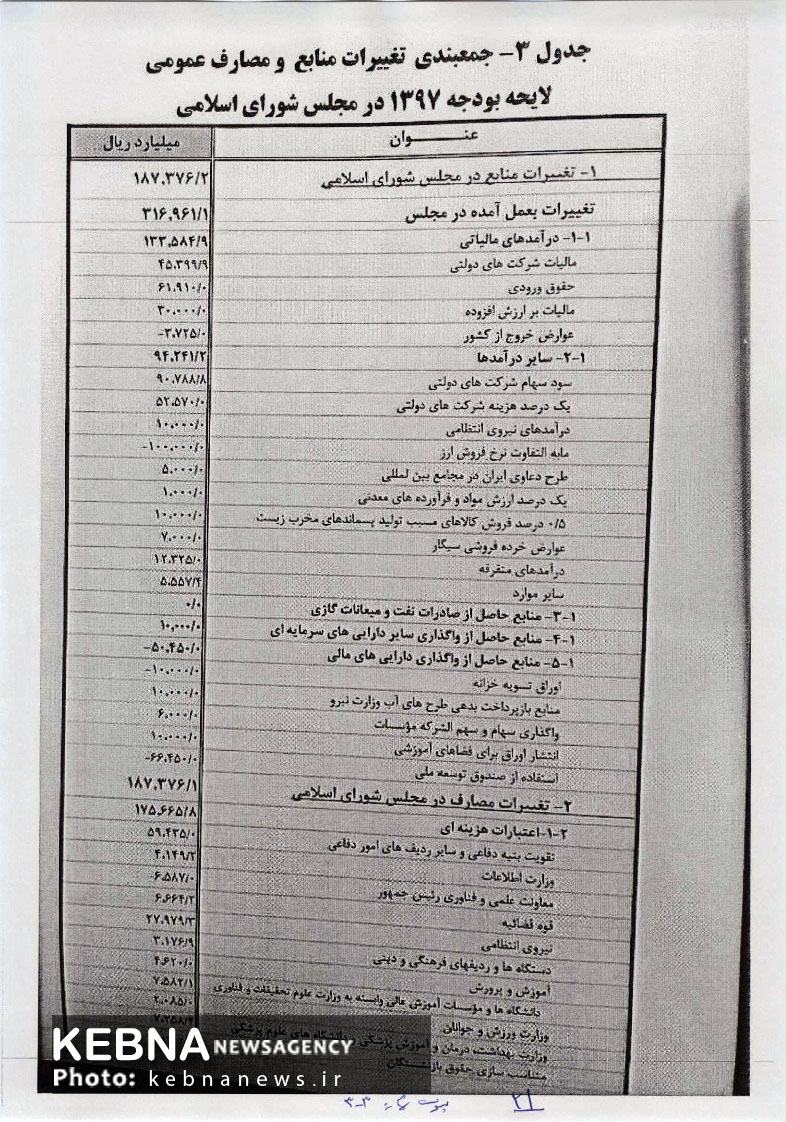 جدول ۳- جمعبندی تغییرات منابع و مصارف عمومی
لایحه بودجه ۱۳۹۷ در مجلس شورای اسلامی
عنـــــــوان میلیارد ریال
۱- تغییرات منابع در مجلس شورای اسلامی ۱۸۷،۳۷۶/۲
تغییرات بعمل آمده در مجلس ۳۱۶،۹۶۱/۱
۱-۱- درآمدهای مالیاتی ۱۳۳،۵۸۴/۹
مالیات شرکت های دولتی ۴۵،۳۹۹/۹
حقوق ورودی ۶۱،۹۱۰/۰
مالیات بر ارزش افزوده ۳۰،۰۰۰/۰
عوارض خروج از کشور -۳،۷۲۵/۰
۲-۱- سایر درآمدها ۹۴،۲۴۱/۲
سود سهام شرکت های دولتی ۹۰،۷۸۸/۸
یک درصد هزینه شرکت های دولتی ۵۲،۵۷۰/۰
درآمدهای نیروی انتظامی ۱۰،۰۰۰/۰
مابه التفاوت نرخ فروش ارز -۱۰۰،۰۰۰/۰
طرح دعاوی ایران در مجامع بین المللی ۵،۰۰۰/۰
یک درصد ارزش مواد و فرآورده های معدنی ۱،۰۰۰/۰
۰/۵ درصد فروش کالاهای مسبب تولید پسماندهای مخرب زیست ۱۰،۰۰۰/۰
عوارض خرده فروشی سیگار ۷،۰۰۰/۰
درآمدهای متفرقه ۱۲،۳۲۵/۰
سایر موارد ۵،۵۵۷/۴
۳-۱- منابع حاصل از صادرات نفت و میعانات گازی ۰/۰
۴-۱- منابع حاصل از واگذاری سایر دارایی های سرمایه ای ۱۰،۰۰۰/۰
۵-۱- منابع حاصل از واگذاری دارایی های مالی -۵۰،۴۵۰/۰
اوراق تسویه خزانه -۱۰،۰۰۰/۰
منابع بازپرداخت بدهی طرح های آب وزارت نیرو ۱۰،۰۰۰/۰
واگذاری سهام و سهم الشرکه مؤسسات ۶،۰۰۰/۰
انتشار اوراق برای فضاهای آموزشی ۱۰،۰۰۰/۰
استفاده از صندوق توسعه ملی -۶۶،۴۵۰/۰
۲- تغییرات مصارف در مجلس شورای اسلامی ۱۸۷،۳۷۶/۱
۱-۲-اعتبارات هزینه ای ۱۷۵،۶۶۵/۸
تقویت بنیه دفاعی و سایر ردیف های امور دفاعی ۵۹،۴۳۵/۰
وزارت اطلاعات ۴،۱۴۹/۲
معاونت علمی و فناوری رئیس جمهور ۶،۵۸۷/۰
قوه قضائیه ۶،۶۶۴/۲
نیروی انتظامی ۲۷،۹۷۹/۳
دستگاه ها و ردیفهای فرهنگی و دینی ۳،۱۷۶/۹
آموزش و پرورش ۴،۶۲۰/۰
دانشگاه ها و مؤسسات آموزش عالی وابسته به وزارت علوم تحقیقات و فناوری ۷،۵۸۲/۱
وزارت ورزش و جوانان ۲،۰۸۵/۰
وزارت بهداشت، درمان و آموزش پزشکی و دانشگاه های علوم پزشکی
متناسب سازی حقوق بازنشستگان
KEBNA NEWSAGENCY
Photo: kebnanews.ir
۲۱